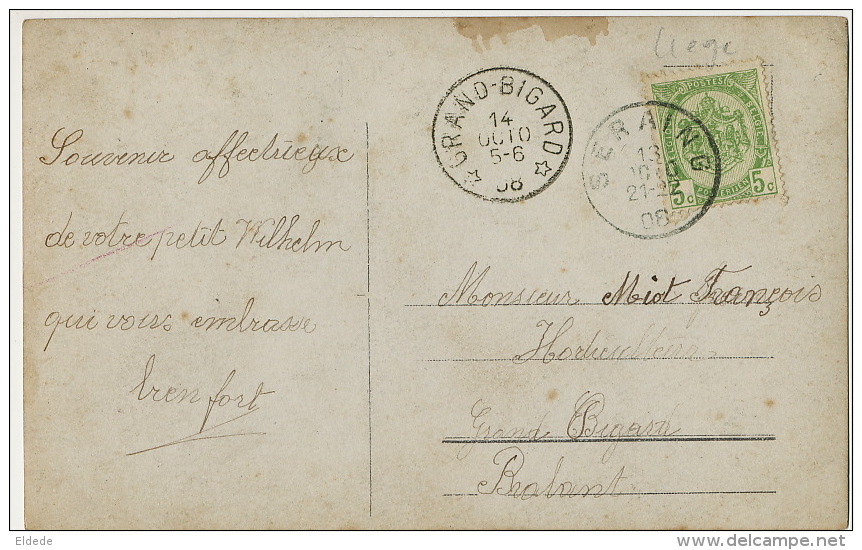 Liege
Souvenir affectueux
de votre petit Wilhelm
qui vous embrasse
bien fort
GRAND-BIGARD
14
OCTO
5-6
08
SERAING
13
21-
08
POSTES
BELGIQUE
5c 5c
Monsieur Miot François
Horticulteur
Grand Bigard
Brabant
Eldede
www.delcampe.net